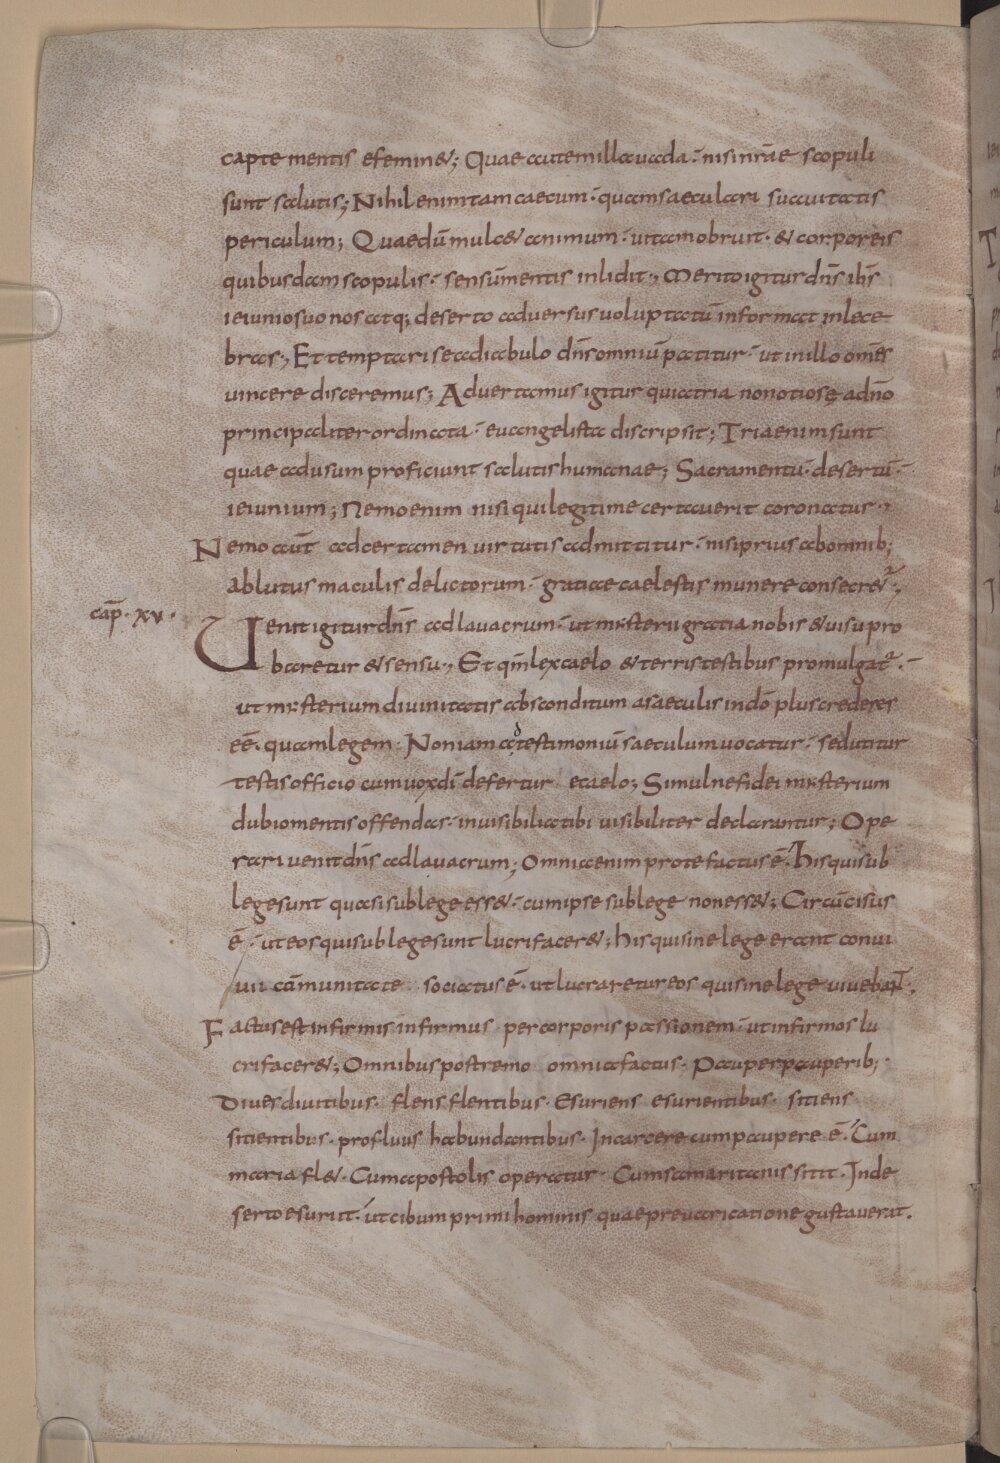 capte mentis efemin&; Quae autem illa uada· nisi nr̄ae scopuli
sunt salutis; Nihil enim tam caecum· quam saeculari suauitatis
periculum; Quae dū mulc& animum· uitam obruit· & corporeis
quibusdam scopulis· sensū mentis inlidit; Merito igitur dn̄s ih̄s
ieiunio suo nos atq; deserto aduersus uoluptatū informat inlece
bras; Et temptari se a diabulo dn̄s omniū patitur· ut in illo om̄es
uincere disceremus; Aduertamus igitur quia tria non otiosę a dn̄o
principaliter ordinata· euangelista discripsit; Tria enim sunt
quae ad usum proficiunt salutis humanae; Sacramentū· desertū·
ieiunium; Nemo enim nisi qui legitime certauerit coronatur·
Nemo aut̄ ad certamen uirtutis admittitur· nisi prius ab omnib;
ablutus maculis delictorum· gratiae caelestis munere consecr&ur;
cap̄· xv·
Uenit igitur dn̄s ad lauacrum· ut mysterii gratia nobis & uisu pro
baretur & sensu; Et qm̄ lex caelo & terris testibus promulgat̄·
ut mysterium diuinitatis absconditum a saeculis in dō plus crederes
ēē· quam legem· Non iam adtestimoniū saeculum uocatur· sed utitur
testis officio cum uox dī defertur e caelo; Simul ne fidei mysterium
dubio mentis offendas· inuisibilia tibi uisibiliter declarantur; Ope
rari uenit dn̄s ad lauacrum; Omnia enim pro te factus ē· his qui sub
lege sunt quasi sub lege ess&· cum ipse sub lege non ess&; Circūcisus
ē· ut eos qui sub lege sunt lucrifacer&; his qui sine lege erant conui
uii cōmunitate sociatus ē· ut lucraretur eos qui sine lege uiuebant̄·
Factus est infirmis infirmus per corporis passionem· ut infirmos lu
crifacer&; Omnibus postremo omnia factus· Pauper pauperib;
Diues diuitibus· flens flentibus· Esuriens esurientibus· sitiens
sitientibus· profluus habundantibus· In carcere cum paupere ē· Cum
maria fl&· Cum apostolis operatur· Cum samaritanis sitit· In de
serto esuriit· ut cibum primi hominis quae preuaricatione gustauerat·